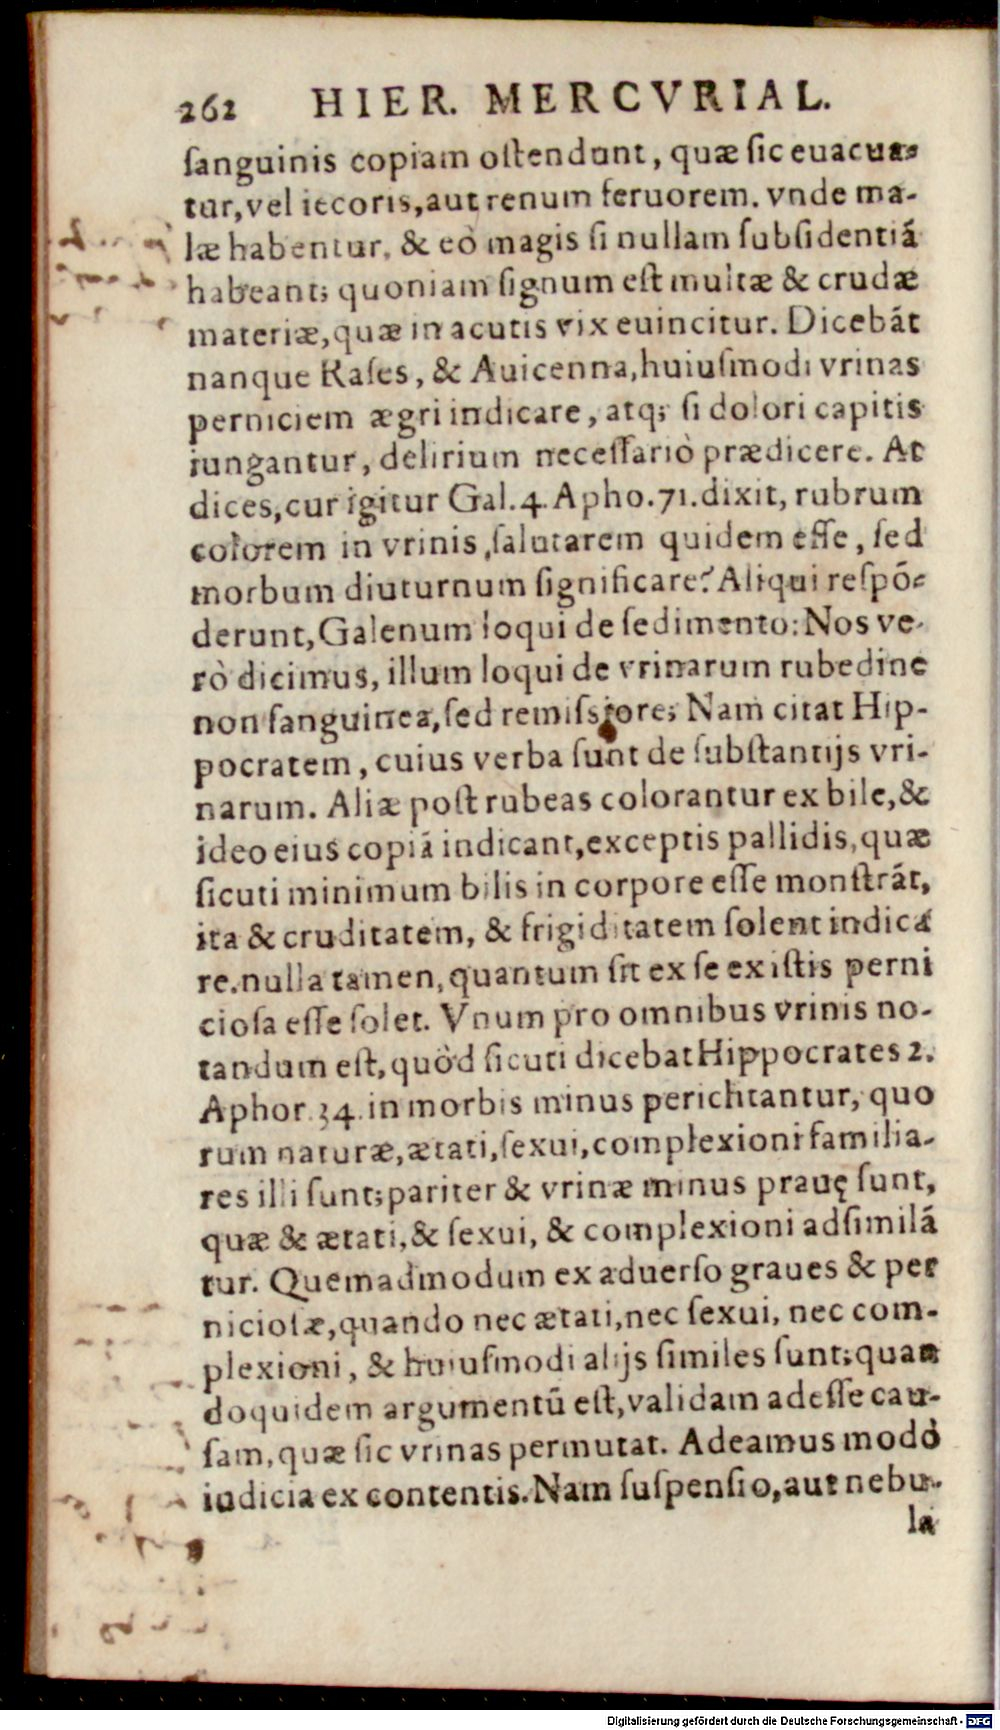 262 HIER. MERCVRIAL.
ſanguinis copiam oſtendunt, quæ ſic euacua-
tur, vel iecoris, aut renum feruorem. vnde ma-
læ habentur, & eò magis ſi nullam ſubſidentiã
habeant; quoniam ſignum eſt multæ & crudæ
materiæ, quæ in acutis vix euincitur. Dicebãt
nanque Raſes, & Auicenna, huiuſmodi vrinas
perniciem ægri indicare, atq; ſi dolori capitis
iungantur, delirium neceſſariò prædicere. At
dices, cur igitur Gal. 4. Apho. 71. dixit, rubrum
colorem in vrinis, ſalutarem quidem eſſe, ſed
morbum diuturnum ſignificare? Aliqui reſpõ-
derunt, Galenum loqui de ſedimento: Nos ve-
rò dicimus, illum loqui de vrinarum rubedine
non ſanguinea, ſed remiſsiore; Nam citat Hip-
pocratem, cuius verba ſunt de ſubſtantijs vri-
narum. Aliæ poſt rubeas colorantur ex bile, &
ideo eius copiã indicant, exceptis pallidis, quæ
ſicuti minimum bilis in corpore eſſe monſtrãt,
ita & cruditatem, & frigiditatem ſolent indica
re. nulla tamen, quantum ſit ex ſe ex iſtis perni
cioſa eſſe ſolet. Vnum pro omnibus vrinis no-
tandum eſt, quòd ſicuti dicebat Hippocrates 2.
Aphor. 34. in morbis minus periclitantur, quo
rum naturæ, ætati, ſexui, complexioni familia-
res illi ſunt; pariter & vrinæ minus prauę ſunt,
quæ & ætati, & ſexui, & complexioni adſimilã
tur. Quemadmodum ex aduerſo graues & per
nicioſæ, quando nec ætati, nec ſexui, nec com-
plexioni, & huiuſmodi alijs ſimiles ſunt; quan
doquidem argumentũ eſt, validam adeſſe cau-
ſam, quæ ſic vrinas permutat. Adeamus modò
iudicia ex contentis. Nam ſuſpenſio, aut nebu-
la
Digitalisierung gefördert durch die Deutsche Forschungsgemeinschaft - DFG